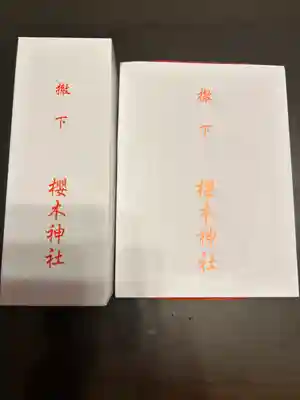 撤下
櫻木神社
撤下
櫻木神社